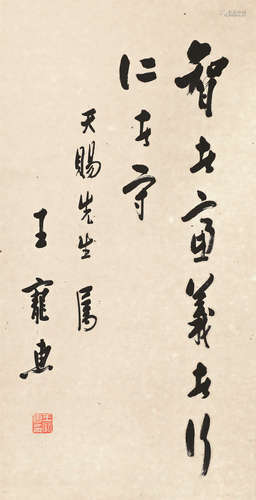 智者慮義者行
仁者守
天賜先生屬
王寵惠